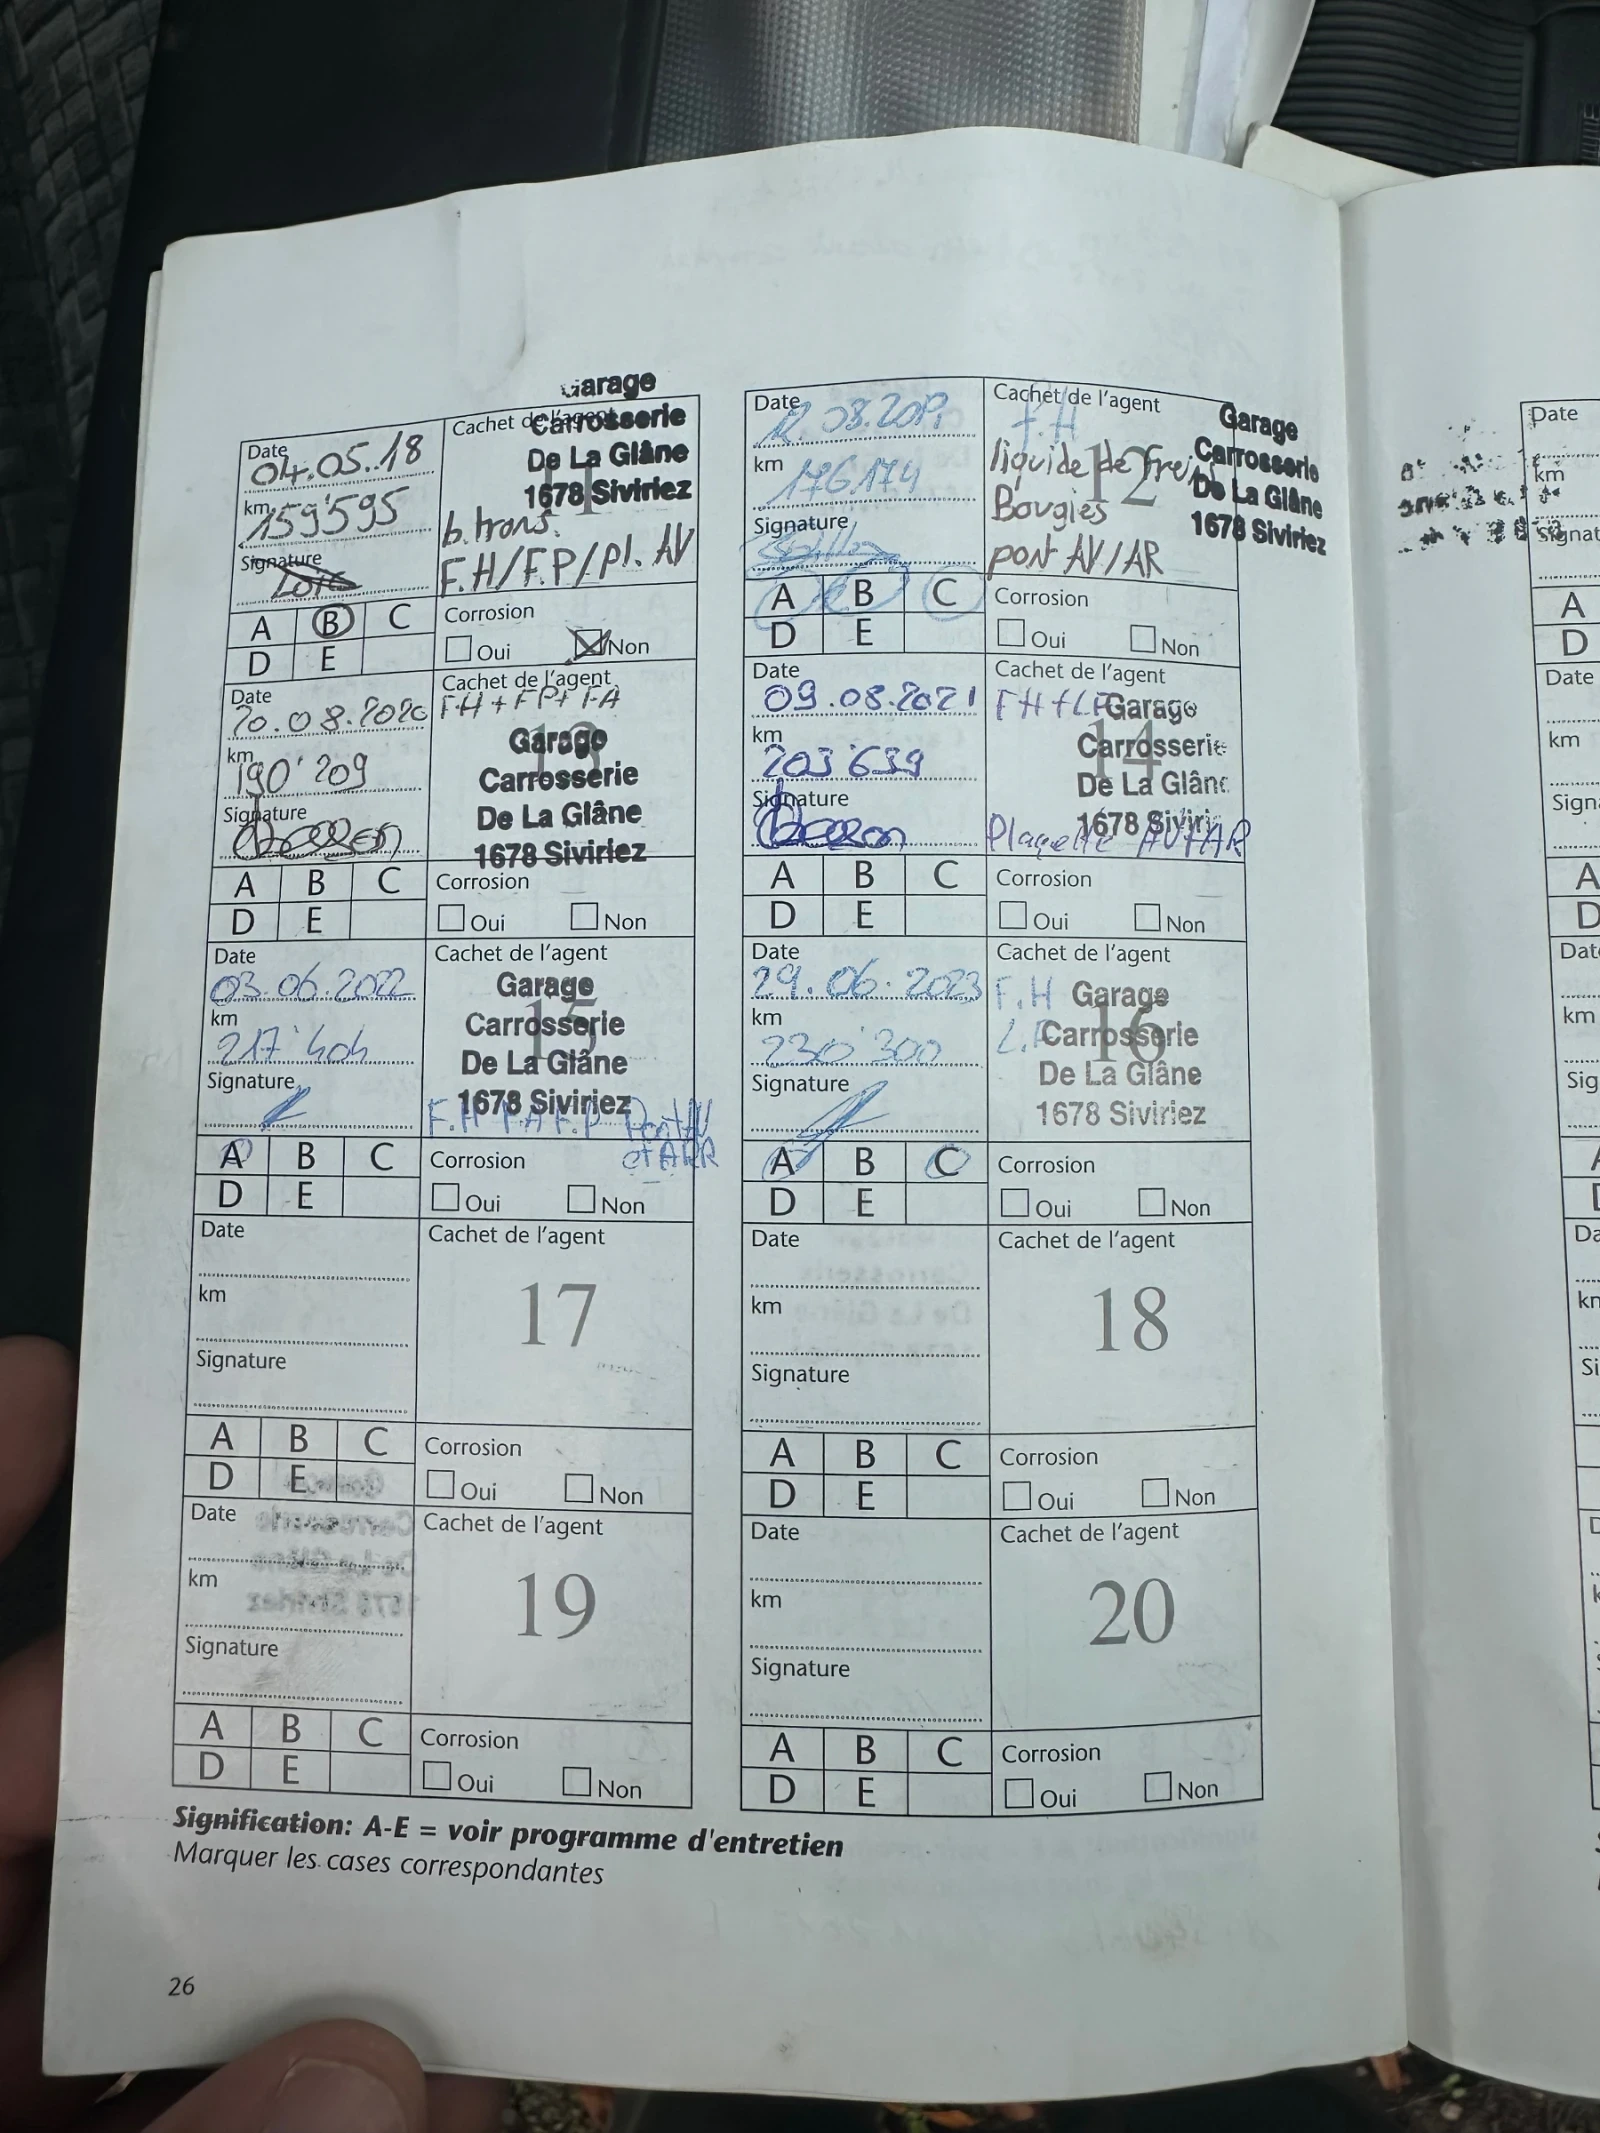 Garage
Carrosserie
De La Glâne
1678 Siviriez
Date 04.05.18
Cachet de l'agent
km 159'595
b. trans.
F.H/F.P/pl. AV
Signature
A B C
D E
Corrosion
Oui Non
Date
Cachet de l'agent
F.H
12
km 176.174
liquide de frein
Bougies
pont AV/AR
Signature
Garage
Carrosserie
De La Glâne
1678 Siviriez
A B C
D E
Corrosion
Oui Non
Date 20.08.2020
Cachet de l'agent
F.H + FP+ FA
13
km 190'209
Signature
Garage
Carrosserie
De La Glâne
1678 Siviriez
A B C
D E
Corrosion
Oui Non
Date 09.08.2021
Cachet de l'agent
14
km 203'639
Signature
Garage
Carrosserie
De La Glân
1678 Siviri
Plaquette AV+AR
A B C
D E
Corrosion
Oui Non
Date 03.06.2022
Cachet de l'agent
15
km 217'404
Signature
Garage
Carrosserie
De La Glâne
1678 Siviriez
F.H F.A F.P Pont AV
et ARR
A B C
D E
Corrosion
Oui Non
Date 29.06.2023
Cachet de l'agent
F.H
16
km 230'300
Signature
Garage
Carrosserie
De La Glâne
1678 Siviriez
A B C
D E
Corrosion
Oui Non
Date
Cachet de l'agent
17
km
Signature
A B C
D E
Corrosion
Oui Non
Date
Cachet de l'agent
18
km
Signature
A B C
D E
Corrosion
Oui Non
Date
Cachet de l'agent
19
km
Signature
A B C
D E
Corrosion
Oui Non
Date
Cachet de l'agent
20
km
Signature
A B C
D E
Corrosion
Oui Non
Signification: A-E = voir programme d'entretien
Marquer les cases correspondantes
26
Date
km
A
D
Date
km
A
D
km